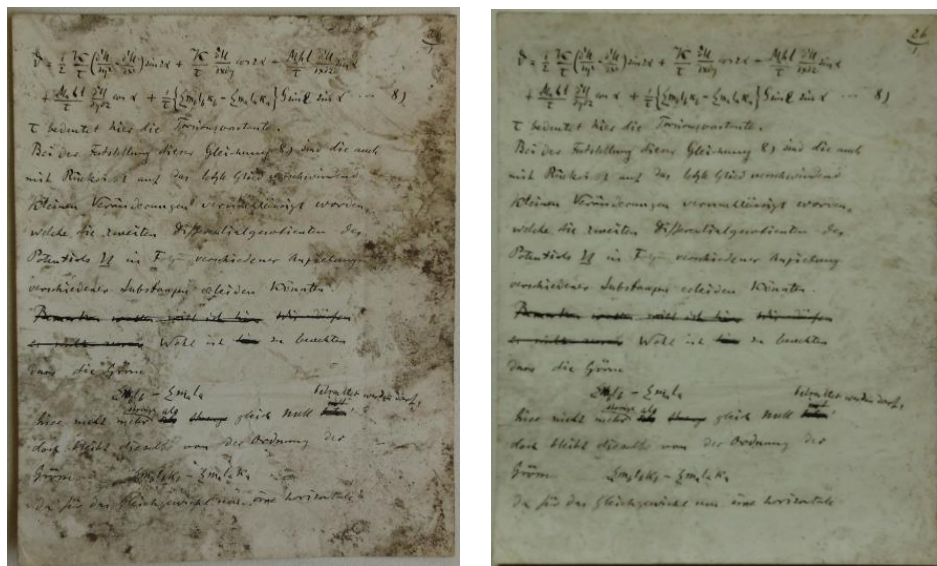 26
ϑ = 1/2 K/τ (∂²U/∂y² − ∂²U/∂x²) sin 2α + K/τ ∂²U/∂x∂y cos 2α − Mhl/τ ∂²U/∂x∂z sin α
+ Mhl/τ ∂²U/∂y∂z cos α + 1/τ {Σm_b l_b κ_b − Σm_a l_a κ_a} G sin ε sin α ... 8)
τ bedeutet hier die Torsionsconstante.
Bei der Feststellung dieser Gleichung 8) sind die auch
mit Rücksicht auf das letzte Glied verschwindend
kleinen Veränderungen vernachlässigt worden,
welche die zweiten Differentialquotienten des
Potentials U in Folge verschiedener Anziehung
verschiedener Substanzen erleiden könnten.
Wohl ist zu beachten
dass die Grösse
Σm_b l_b − Σm_a l_a betrachtet werden darf,
hier nicht mehr als gleich Null
doch bleibt dieselbe von der Ordnung der
Grösse Σm_b l_b κ_b − Σm_a l_a κ_a
Da für das Gleichgewicht um eine horizontale
26
ϑ = 1/2 K/τ (∂²U/∂y² − ∂²U/∂x²) sin 2α + K/τ ∂²U/∂x∂y cos 2α − Mhl/τ ∂²U/∂x∂z sin α
+ Mhl/τ ∂²U/∂y∂z cos α + 1/τ {Σm_b l_b κ_b − Σm_a l_a κ_a} G sin ε sin α ... 8)
τ bedeutet hier die Torsionsconstante.
Bei der Feststellung dieser Gleichung 8) sind die auch
mit Rücksicht auf das letzte Glied verschwindend
kleinen Veränderungen vernachlässigt worden,
welche die zweiten Differentialquotienten des
Potentials U in Folge verschiedener Anziehung
verschiedener Substanzen erleiden könnten.
Wohl ist zu beachten
dass die Grösse
Σm_b l_b − Σm_a l_a betrachtet werden darf,
hier nicht mehr als gleich Null
doch bleibt dieselbe von der Ordnung der
Grösse Σm_b l_b κ_b − Σm_a l_a κ_a
Da für das Gleichgewicht um eine horizontale